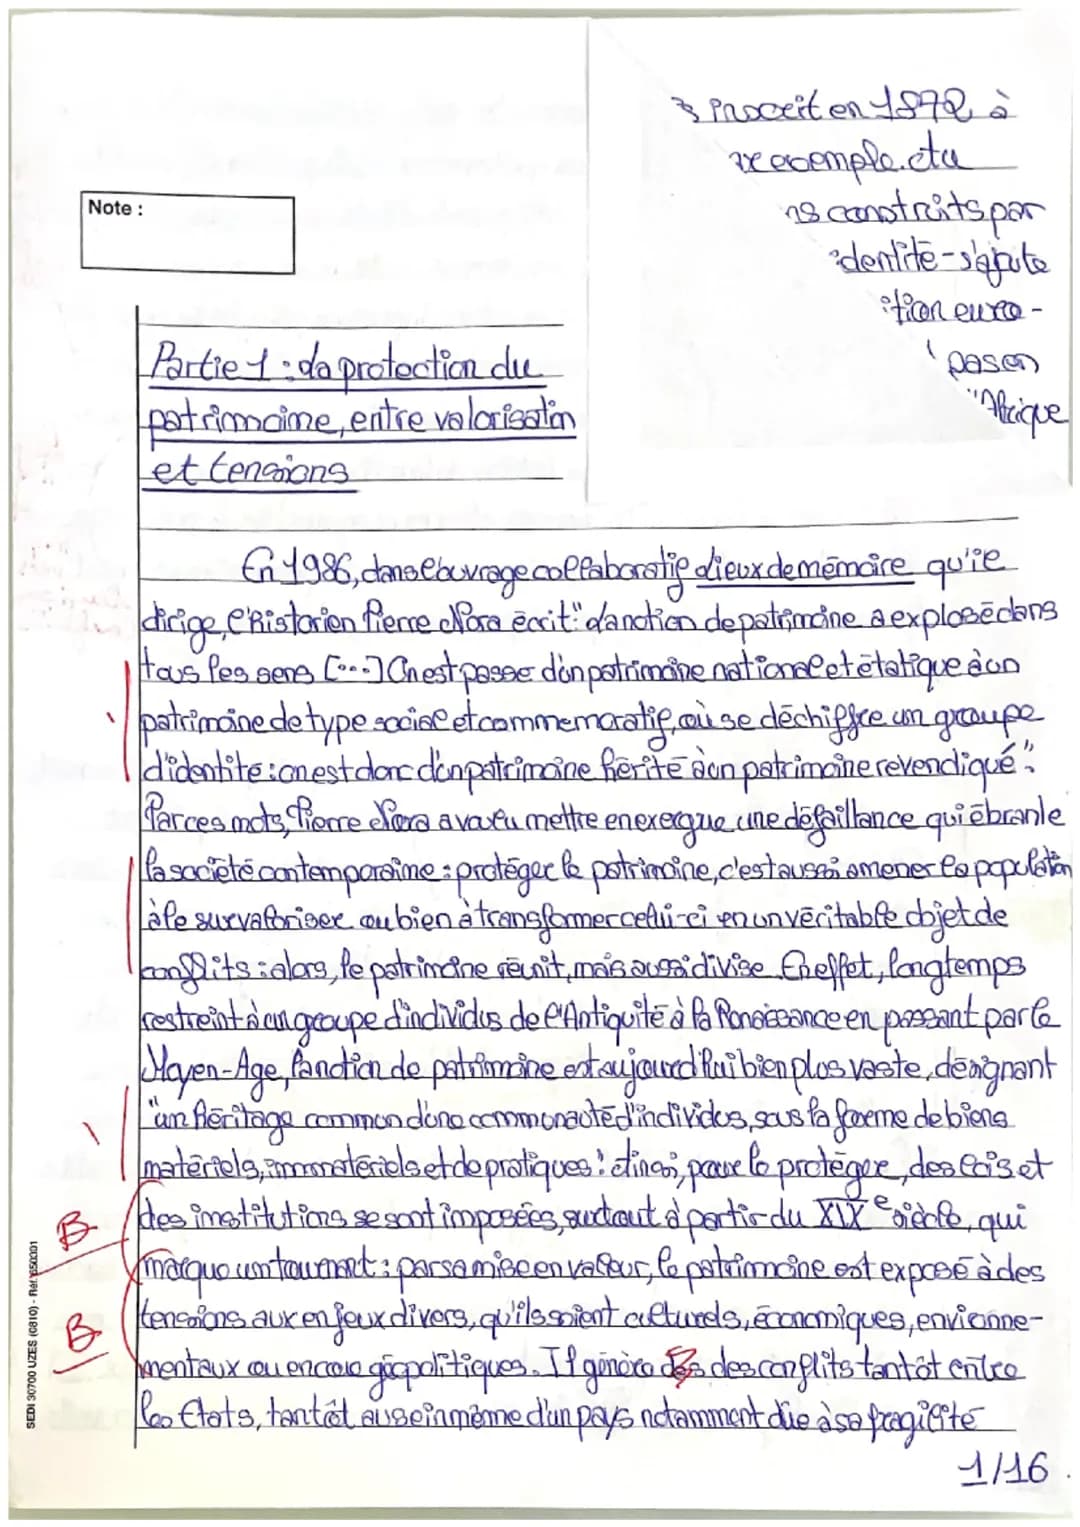 3 inscrit en 1972 à
exemple. cta
ns construits par
identité - s'ajoute
ition euro -
pas en
"Afrique
Note :
Partie 1 : La protection du
patrimoine, entre valorisatin
et tensions
En 1986, dans l'ouvrage collaboratif Lieux de mémoire qu'il
dirige, l'historien Pierre Nora écrit : "La notion de patrimoine a explosé dans
tous les sens [...] On est passé d'un patrimoine national et étatique à un
patrimoine de type social et commemoratif, où se déchiffre un groupe
d'identité : on est donc d'un patrimoine hérité à un patrimoine revendiqué".
Par ces mots, Pierre Nora a voulu mettre en exergue une défaillance qui ébranle
la société contemporaine : protéger le patrimoine, c'est aussi amener la population
à le survaloriser ou bien à transformer celui-ci en un véritable objet de
conflits : alors, le patrimoine réunit, mais aussi divise. En effet, longtemps
restreint à un groupe d'individus de l'Antiquité à la Renaissance en passant par le
Moyen-Age, la notion de patrimoine est aujourd'hui bien plus vaste, désignant
"un héritage commun d'une communauté d'individus, sous la forme de biens
matériels, immatériels et de pratiques". Ainsi, pour le protéger, des lois et
des institutions se sont imposées, surtout à partir du XIXe siècle, qui
B
marque un tournant : par sa mise en valeur, le patrimoine est exposé à des
tensions aux enjeux divers, qu'ils soient culturels, économiques, environne-
B
mentaux ou encore géopolitiques. Il génère des des conflits tantôt entre
les Etats, tantôt au sein même d'un pays notamment due à sa fragilité
1/16
SEDI 30700 UZES (0810) - Réf.